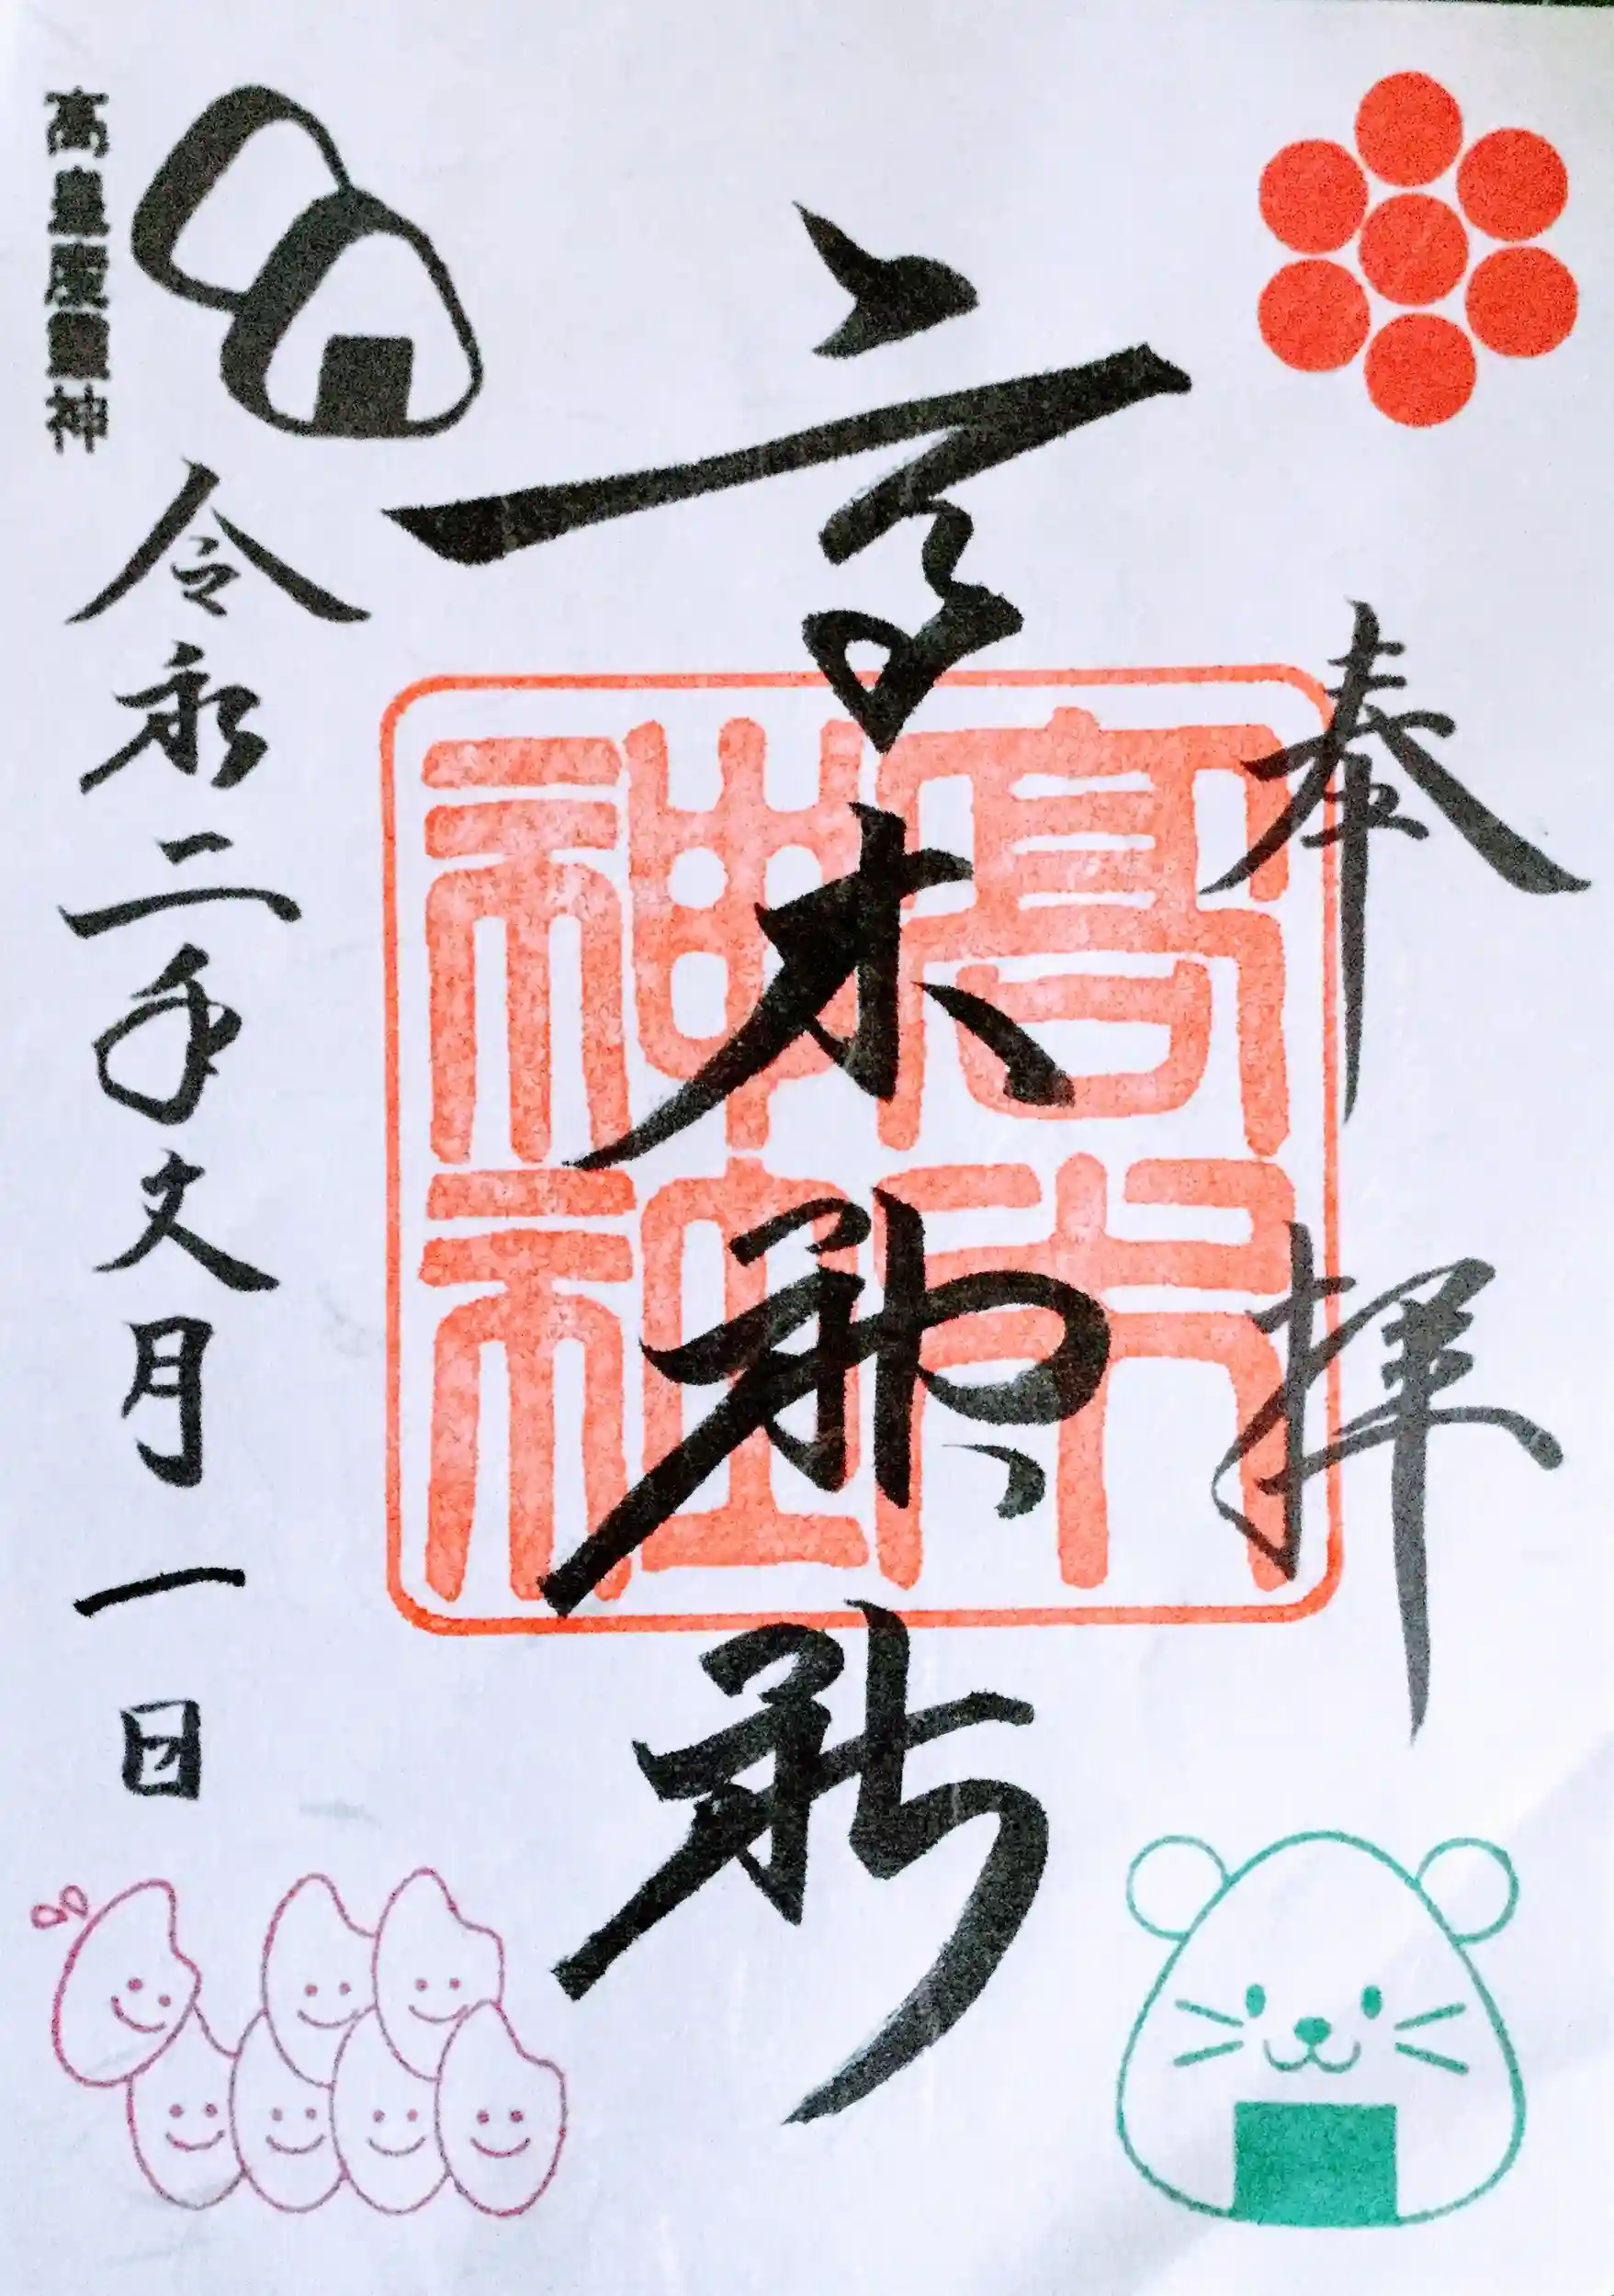 奉拝
高木神社
高木神社
令和二年文月一日
高皇産靈神